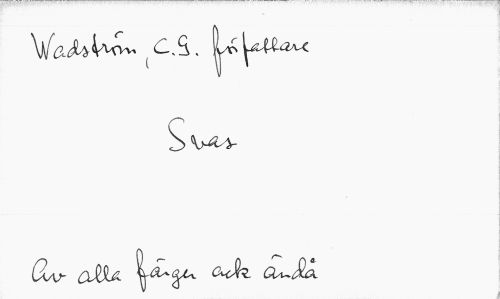 Wadström, C.G. författare
Svar
Av alla färger ack ändå